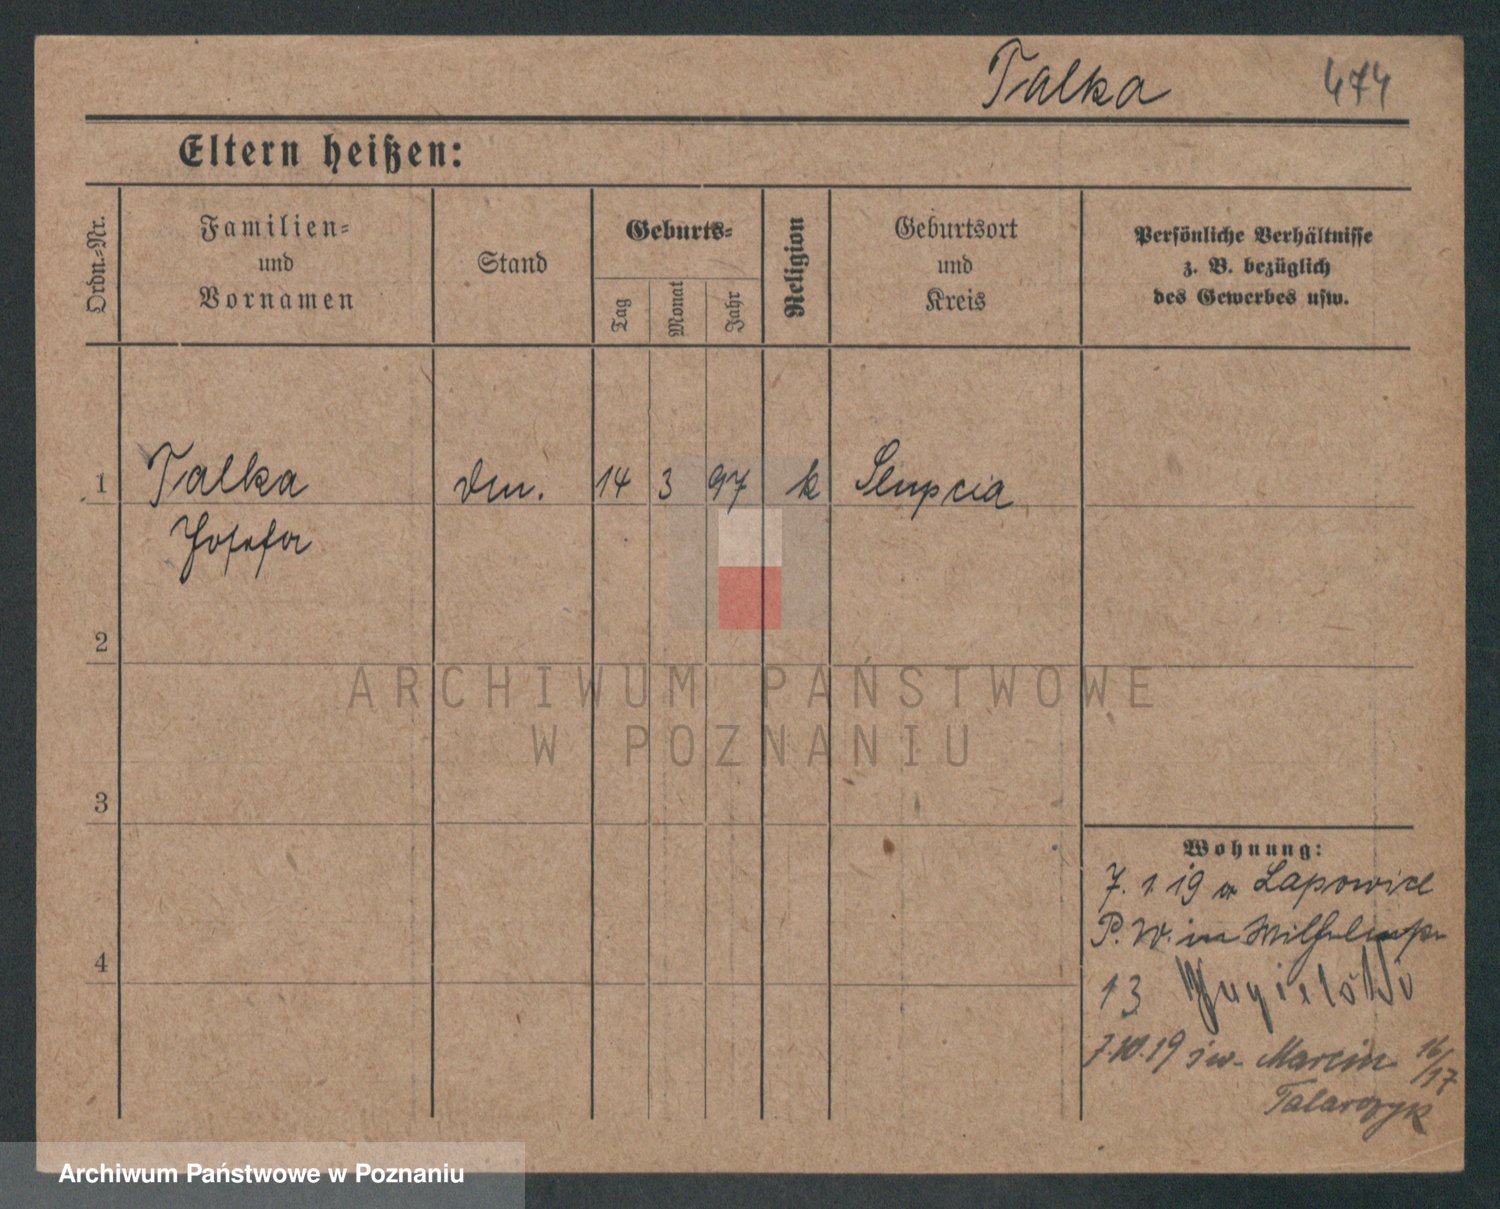 Talka 474
Eltern heißen:
Ordn.-Nr.
Familien-
und
Vornamen
Stand
Geburts-
Tag
Monat
Jahr
Religion
Geburtsort
und
Kreis
Persönliche Verhältnisse
z. B. bezüglich
des Gewerbes usw.
1 Talka 14 3 97 k Slupcia
Josefa
2
3
4
Wohnung:
7. 1 19 Lapowice
P. W. in
13
7.10.19 Marcin 16/17
Talarczyk
ARCHIWUM PAŃSTWOWE
W POZNANIU
Archiwum Państwowe w Poznaniu